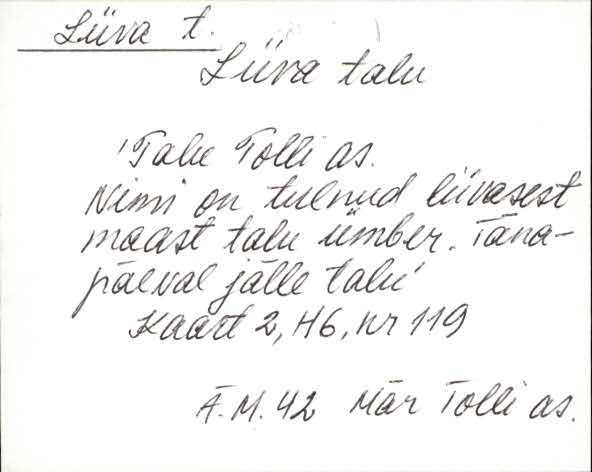 Liiva t.
Liiva talu
'Talu Tolli as.
Nimi on tulnud liivasest
maast talu ümber. Täna-
päeval jälle talu'
Kaart 2, H6, nr 119
Ä.M. 42 Mär Tolli as.